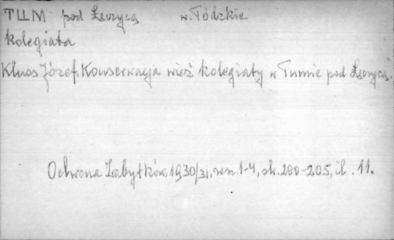 TUM pod Łęczycą w. Łódzkie
kolegiata
Kłuos Józef. Konserwacja wież kolegiaty w Tumie pod Łęczycą.
Ochrona Zabytków, 1930/31, zesz. 1-4, sk. 200-205, il. 11.